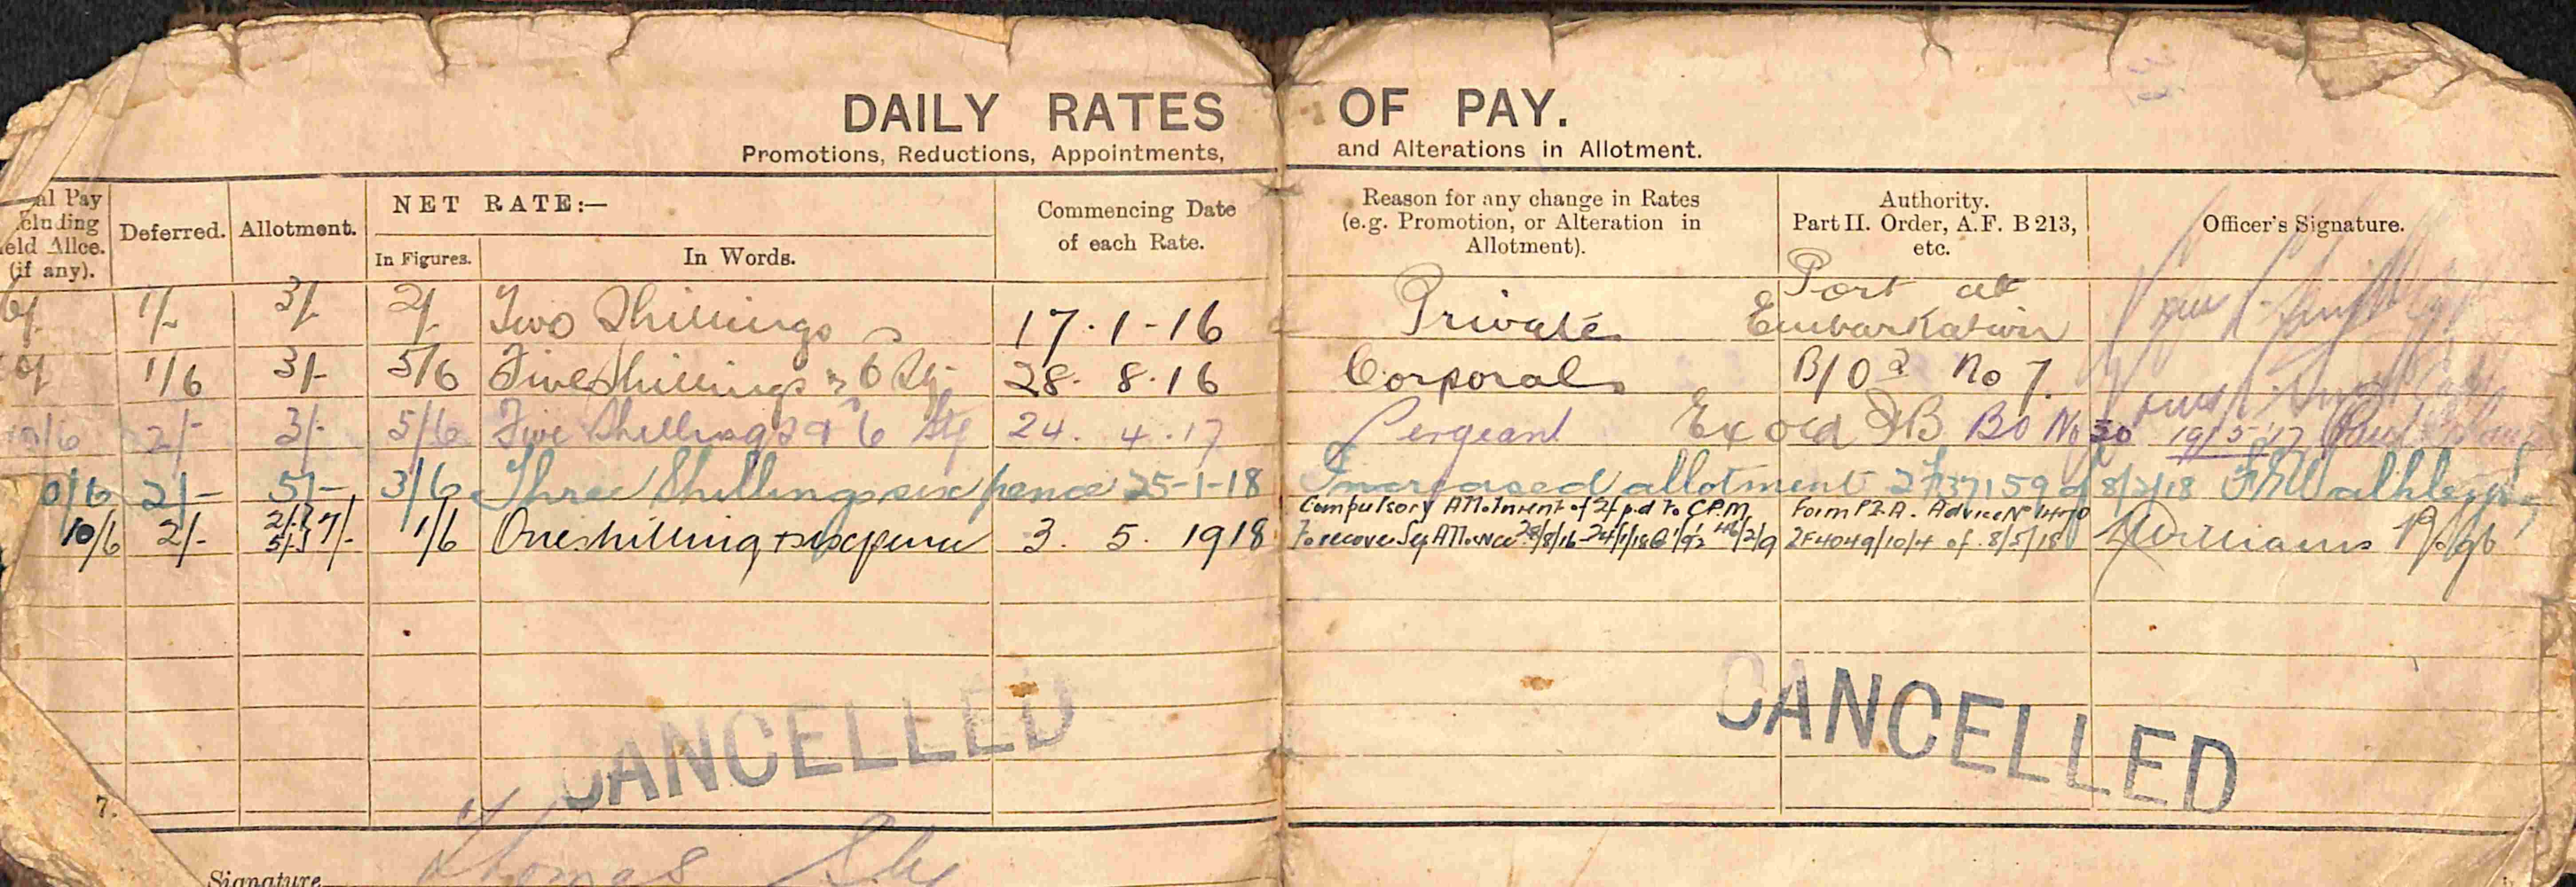 DAILY RATES OF PAY.
Promotions, Reductions, Appointments, and Alterations in Allotment.
al Pay
cluding
eld Allce.
(if any).
Deferred.
Allotment.
NET RATE:—
In Figures.
In Words.
Commencing Date
of each Rate.
Reason for any change in Rates
(e.g. Promotion, or Alteration in
Allotment).
Authority.
Part II. Order, A.F. B 213,
etc.
Officer's Signature.
6/- 1/- 3/- 2/- Two Shillings 17·1-16 Private Port at Embarkation
1/6 3/- 5/6 Five Shillings & 6 28. 8.16 Corporal B/O No 7.
10/6 2/- 3/- 5/6 Five Shillings & 6 24. 4.17 Sergeant BO No 30 19/5/17
0/6 2/- 5/- 3/6 Three Shillings six pence 25-1-18 Increased allotment 2F37159 of 8/2/18
10/6 2/- 2/- 5/- } 7/- 1/6 One shilling + sixpence 3. 5. 1918
Compulsory Allotment of 2/- p.d to C.P.M. Form P.2.A. Advice No
To recover Sep Allowance 28/8/16-24/1/18 2F4049/10/4 of 8/5/18 Williams
CANCELLED
CANCELLED
7.
Signature Thomas Sly